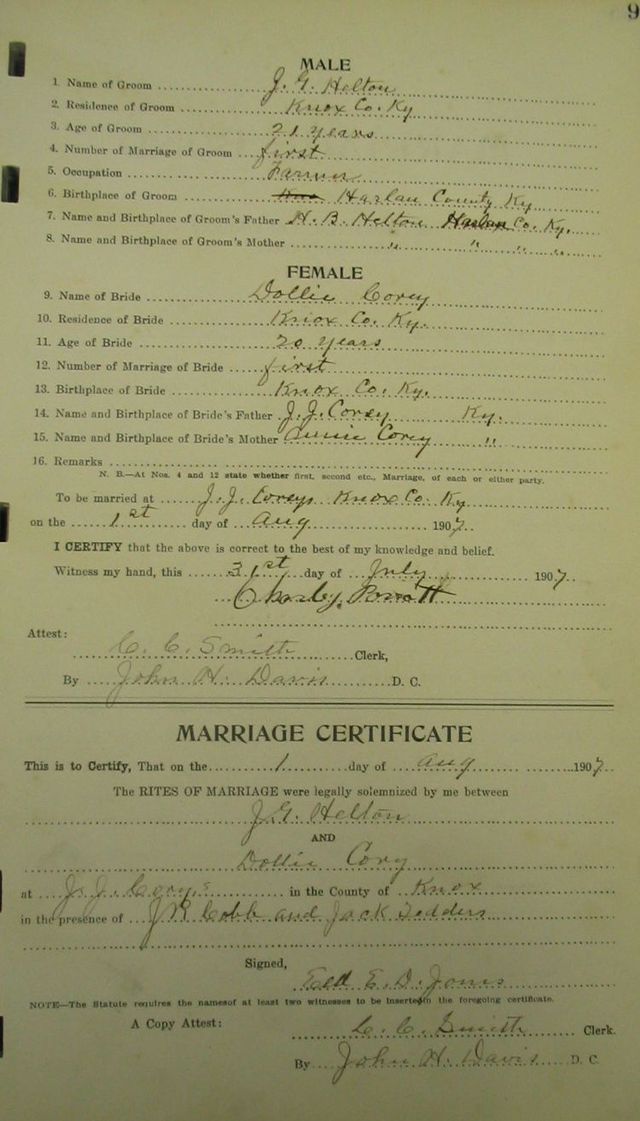 9
MALE
1. Name of Groom J. G. Helton
2. Residence of Groom Knox Co. Ky
3. Age of Groom 21 years
4. Number of Marriage of Groom first
5. Occupation Farmer
6. Birthplace of Groom Harlan County Ky
7. Name and Birthplace of Groom's Father H. B. Helton Harlan Co. Ky.
8. Name and Birthplace of Groom's Mother " " " "
FEMALE
9. Name of Bride Dollie Corey
10. Residence of Bride Knox Co. Ky.
11. Age of Bride 20 years
12. Number of Marriage of Bride first
13. Birthplace of Bride Knox Co. Ky.
14. Name and Birthplace of Bride's Father J. J. Corey Ky.
15. Name and Birthplace of Bride's Mother Corey "
16. Remarks
N. B.—At Nos. 4 and 12 state whether first, second etc., Marriage, of each or either party.
To be married at J. J. Coreys Knox Co. Ky
on the 1st day of Aug 1907.
I CERTIFY that the above is correct to the best of my knowledge and belief.
Witness my hand, this 31st day of July 1907.
Charley
Attest:
C. C. Smith Clerk,
By John H. Davis D. C.
MARRIAGE CERTIFICATE
This is to Certify, That on the 1 day of Aug 1907
The RITES OF MARRIAGE were legally solemnized by me between
J. G. Helton
AND
Dollie Cory
at J. J. Corys in the County of Knox
in the presence of J R Cobb and Jack Tedders
Signed,
E. D. Jones
NOTE—The Statute requires the namesof at least two witnesses to be inserted in the foregoing certificate.
A Copy Attest: C. C. Smith Clerk.
By John H. Davis D. C.